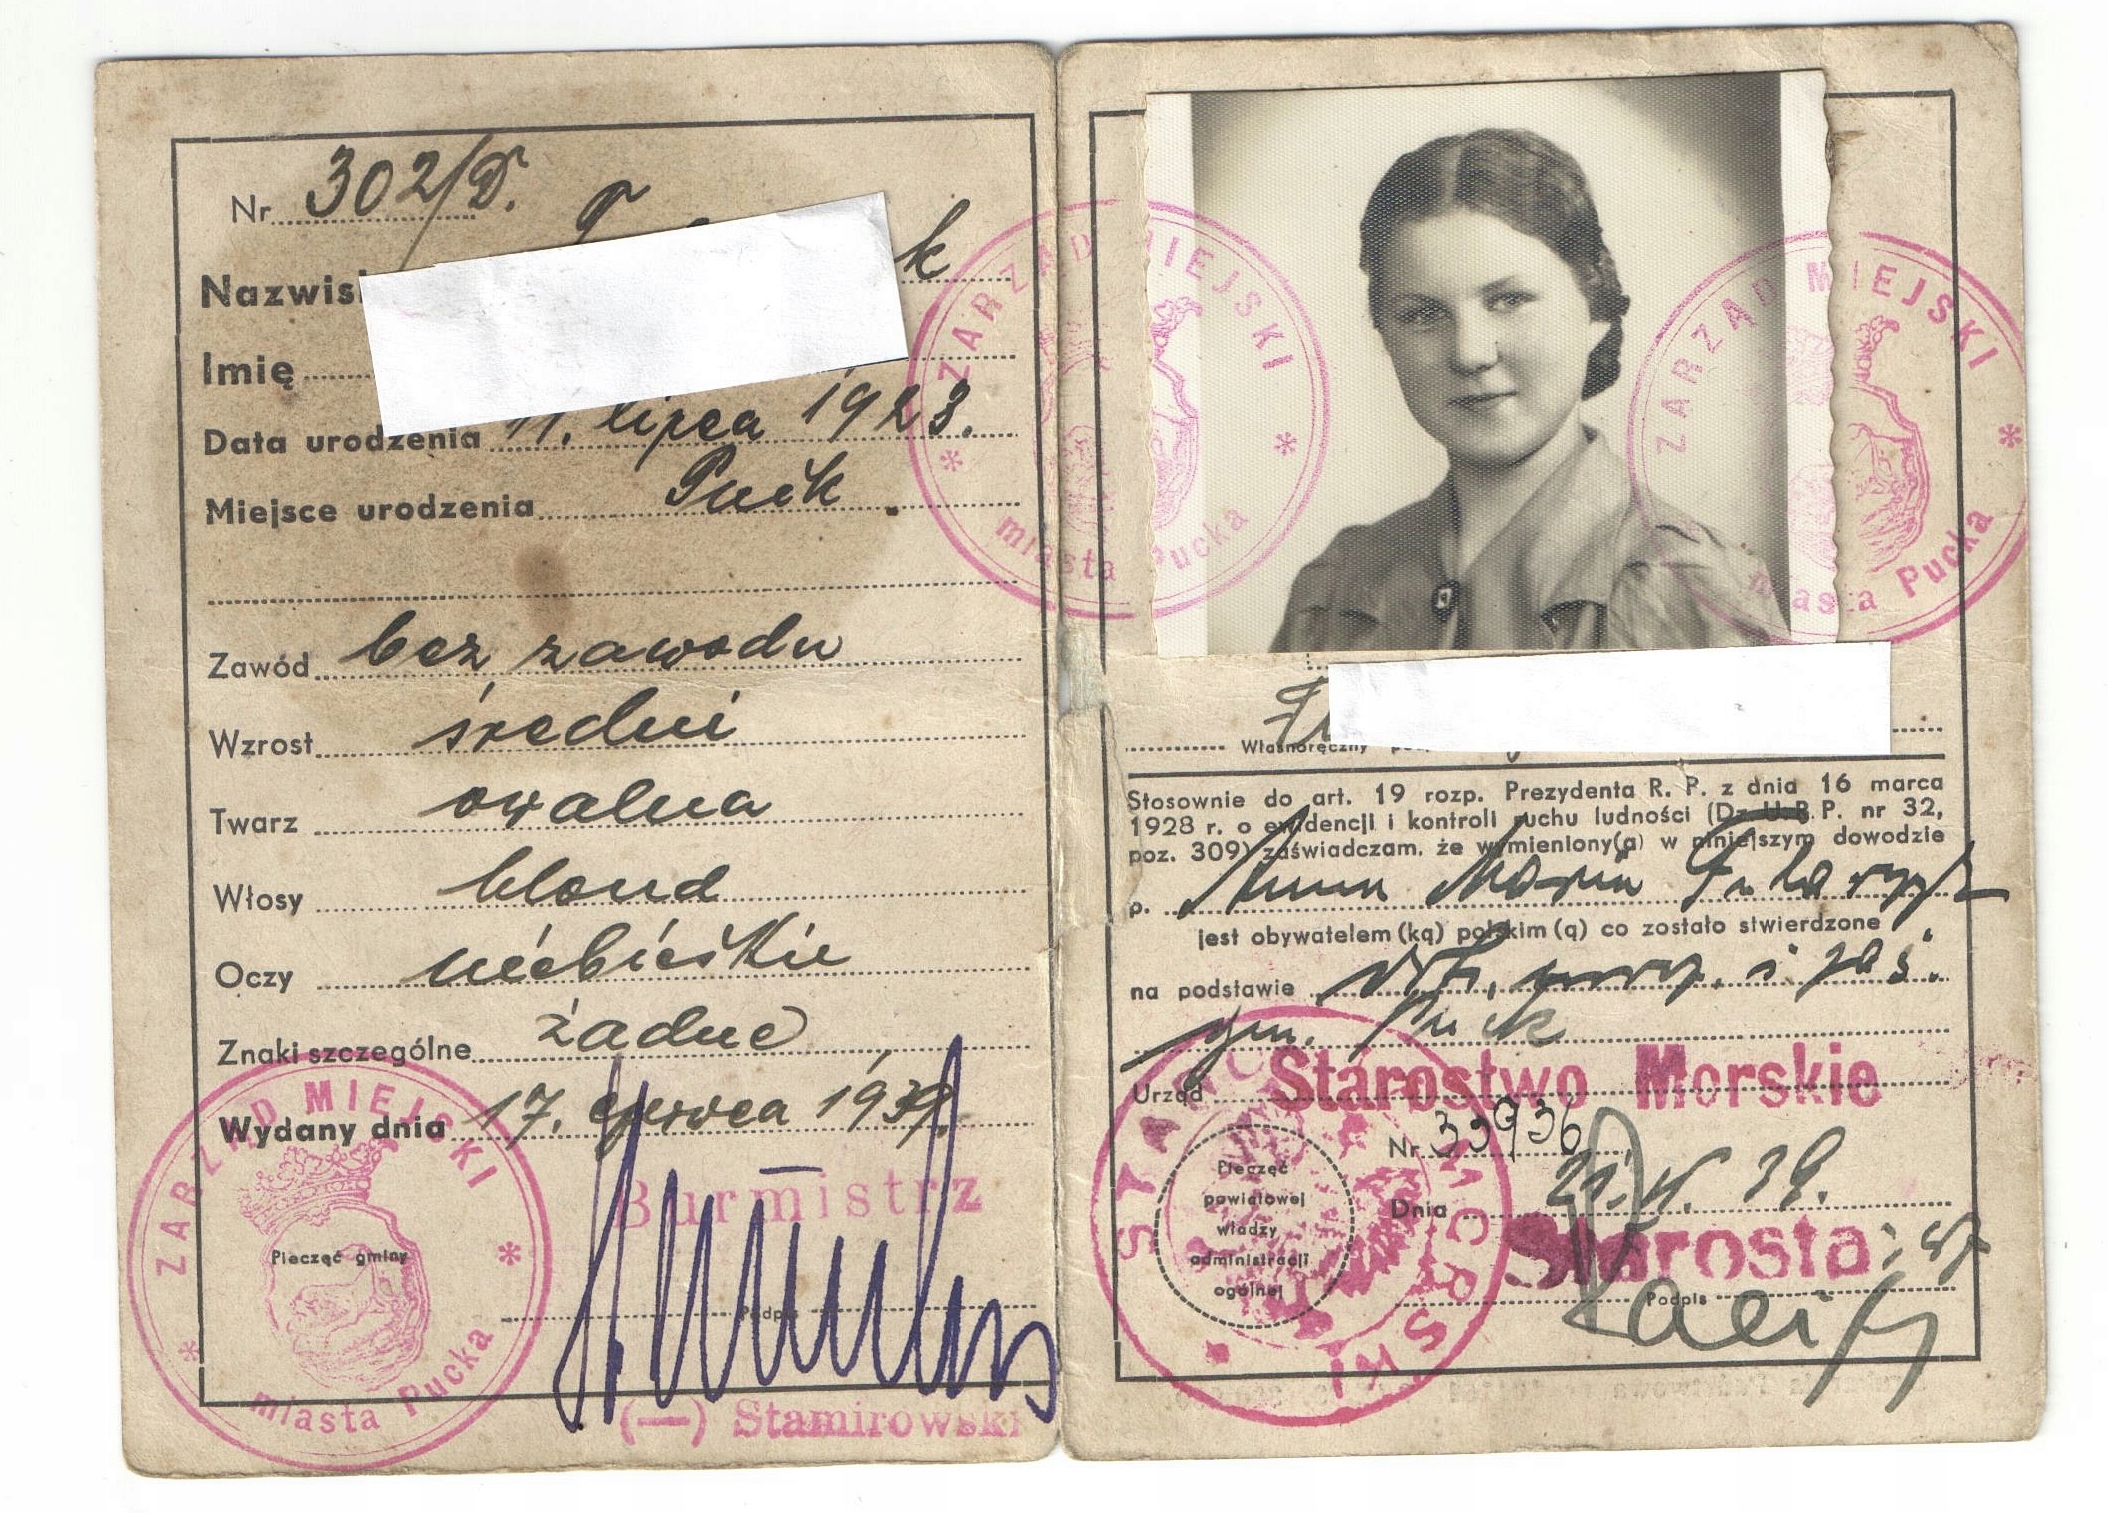 Nr 302/D.
Nazwisk
Imię
Data urodzenia 11. lipca 1923.
Miejsce urodzenia Puck
Zawód bez zawodu
Wzrost średni
Twarz owalna
Włosy blond
Oczy niebieskie
Znaki szczególne żadne
Wydany dnia 17. czerwca 1939.
ZARZĄD MIEJSKI
miasta Pucka
Pieczęć gminy
Burmistrz
Podpis
(—) Stamirowski
ZARZĄD MIEJSKI
miasta Pucka
ZARZĄD MIEJSKI
miasta Pucka
Własnoręczny
Stosownie do art. 19 rozp. Prezydenta R. P. z dnia 16 marca
1928 r. o ewidencji i kontroli ruchu ludności (Dz. U. R. P. nr 32,
poz. 309) zaświadczam, że wymieniony(a) w niniejszym dowodzie
p. Anna Maria
jest obywatelem (ką) polskim (ą) co zostało stwierdzone
na podstawie
gm. Puck
Urząd Starostwo Morskie
Nr 33936
Dnia
Pieczęć
powiatowej
władzy
administracji
ogólnej
Starosta
Podpis